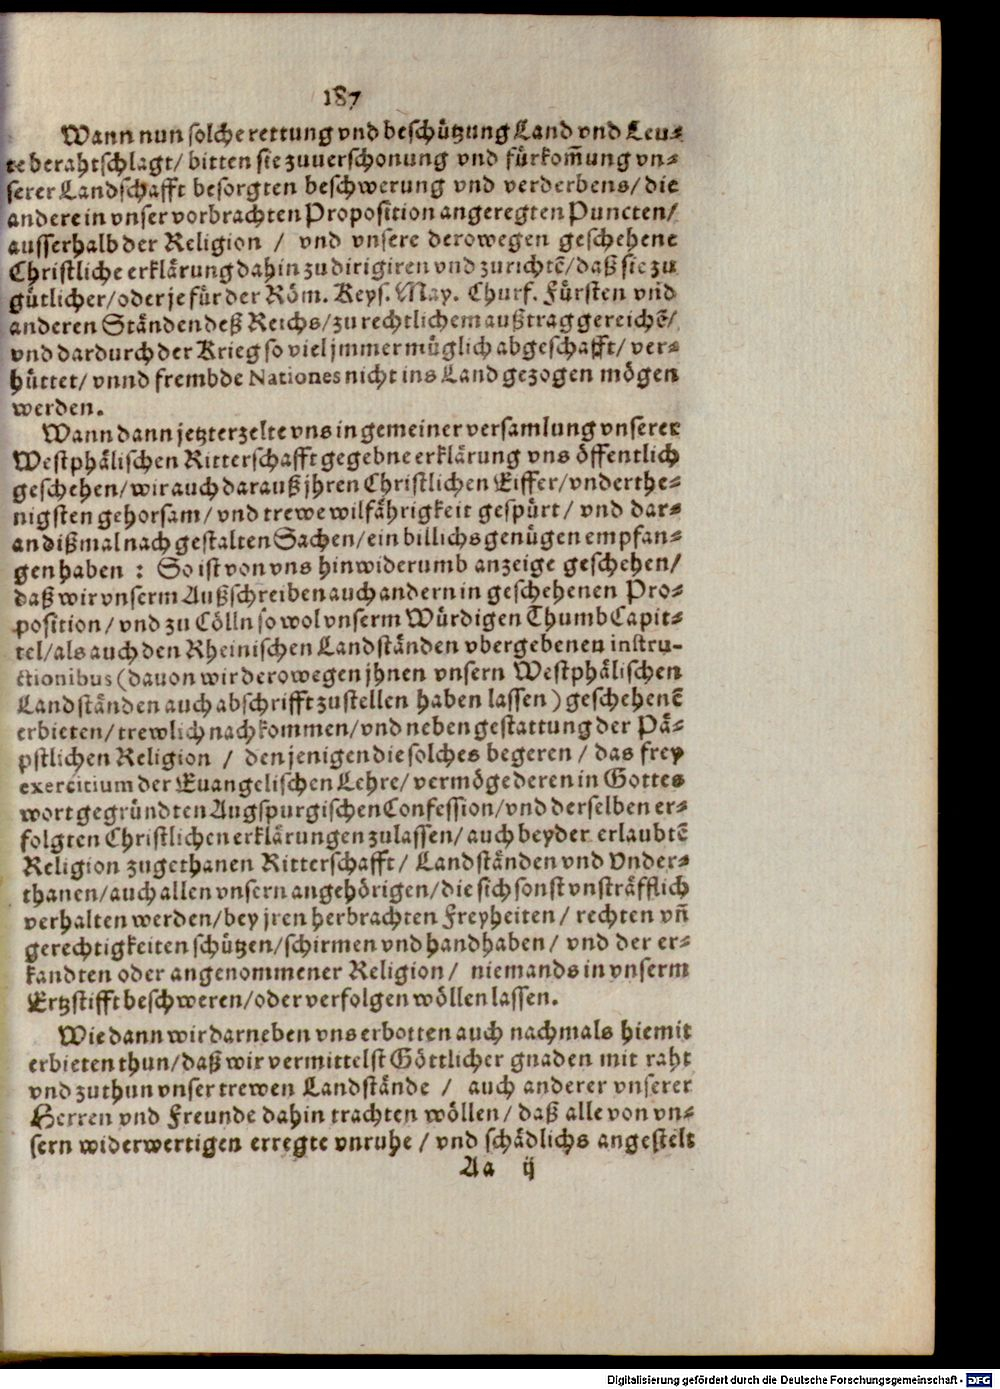 187
Wann nun solche rettung vnd beschützung Land vnd Leu-
te berahtschlagt/ bitten sie zuuerschonung vnd fürkom̃ung vn-
serer Landschafft besorgten beschwerung vnd verderbens/ die
andere in vnser vorbrachten Proposition angeregten Puncten/
ausserhalb der Religion / vnd vnsere derowegen geschehene
Christliche erklärung dahin zu dirigiren vnd zu richtẽ/ daß sie zu
gütlicher/ oder je für der Röm. Keys. May. Churf. Fürsten vnd
anderen Ständen deß Reichs/ zu rechtlichem außtrag gereichẽ/
vnd dardurch der Krieg so viel jmmer müglich abgeschafft/ ver-
hüttet/ vnnd frembde Nationes nicht ins Land gezogen mögen
werden.
Wann dann jetzterzelte vns in gemeiner versamlung vnserer
Westphälischen Ritterschafft gegebne erklärung vns öffentlich
geschehen/ wir auch darauß jhren Christlichen Eiffer/ vnderthe-
nigsten gehorsam/ vnd trewe wilfährigkeit gespürt/ vnd dar-
an dißmal nach gestalten Sachen/ ein billichs genügen empfan-
gen haben : So ist von vns hinwiderumb anzeige geschehen/
daß wir vnserm Außschreiben auch andern in geschehenen Pro-
position/ vnd zu Cölln so wol vnserm Würdigen Thumb Capit-
tel/ als auch den Rheinischen Landständen vbergebenen instru-
ctionibus (dauon wir derowegen jhnen vnsern Westphälischen
Landständen auch abschrifft zustellen haben lassen) geschehenẽ
erbieten/ trewlich nachkommen/ vnd neben gestattung der Pä-
pstlichen Religion / denjenigen die solches begeren / das frey
exercitium der Euangelischen Lehre/ vermöge deren in Gottes
wort gegründten Augspurgischen Confession/ vnd derselben er-
folgten Christlichen erklärungen zulassen/ auch beyder erlaubtẽ
Religion zugethanen Ritterschafft/ Landständen vnd Vnder-
thanen/ auch allen vnsern angehörigen/ die sich sonst vnsträfflich
verhalten werden/ bey jren herbrachten Freyheiten/ rechten vñ
gerechtigkeiten schützen/ schirmen vnd handhaben/ vnd der er-
kandten oder angenommener Religion/ niemands in vnserm
Ertzstifft beschweren/ oder verfolgen wöllen lassen.
Wie dann wir darneben vns erbotten auch nachmals hiemit
erbieten thun/ daß wir vermittelst Göttlicher gnaden mit raht
vnd zuthun vnser trewen Landstände / auch anderer vnserer
Herren vnd Freunde dahin trachten wöllen/ daß alle von vn-
sern widerwertigen erregte vnruhe / vnd schädlichs angestelt
Aa ij
Digitalisierung gefördert durch die Deutsche Forschungsgemeinschaft - DFG